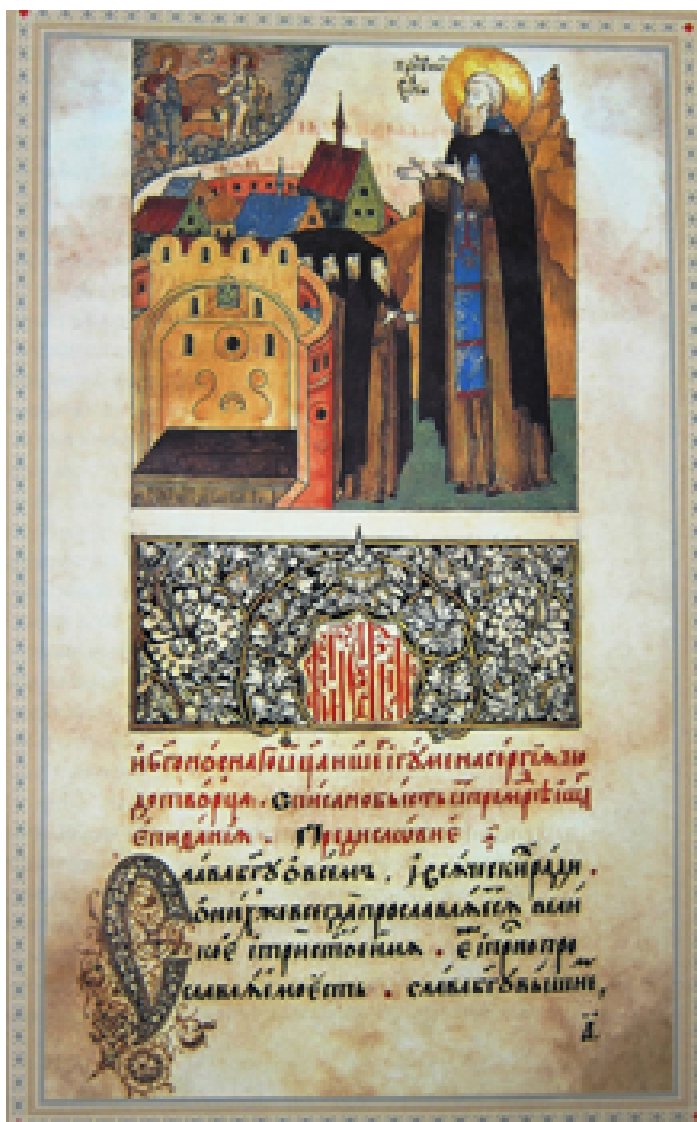 и бг҃оноснаго ѿц҃а нш҃е іг҃умена сергїѧ чю
дотворца . Списано бысть ѿ прм҃дрѣиш
Епифанїѧ . Предисловїе
Слава бг҃у ѡ всемъ . і всѧческих ради .
ѡ нихже всегда прославлѧетсѧ вели
кое і трист҃ое имѧ . еже і прⷭ҇но про
славлѧемо есть . слава бг҃у вышнⷨ҇у ,